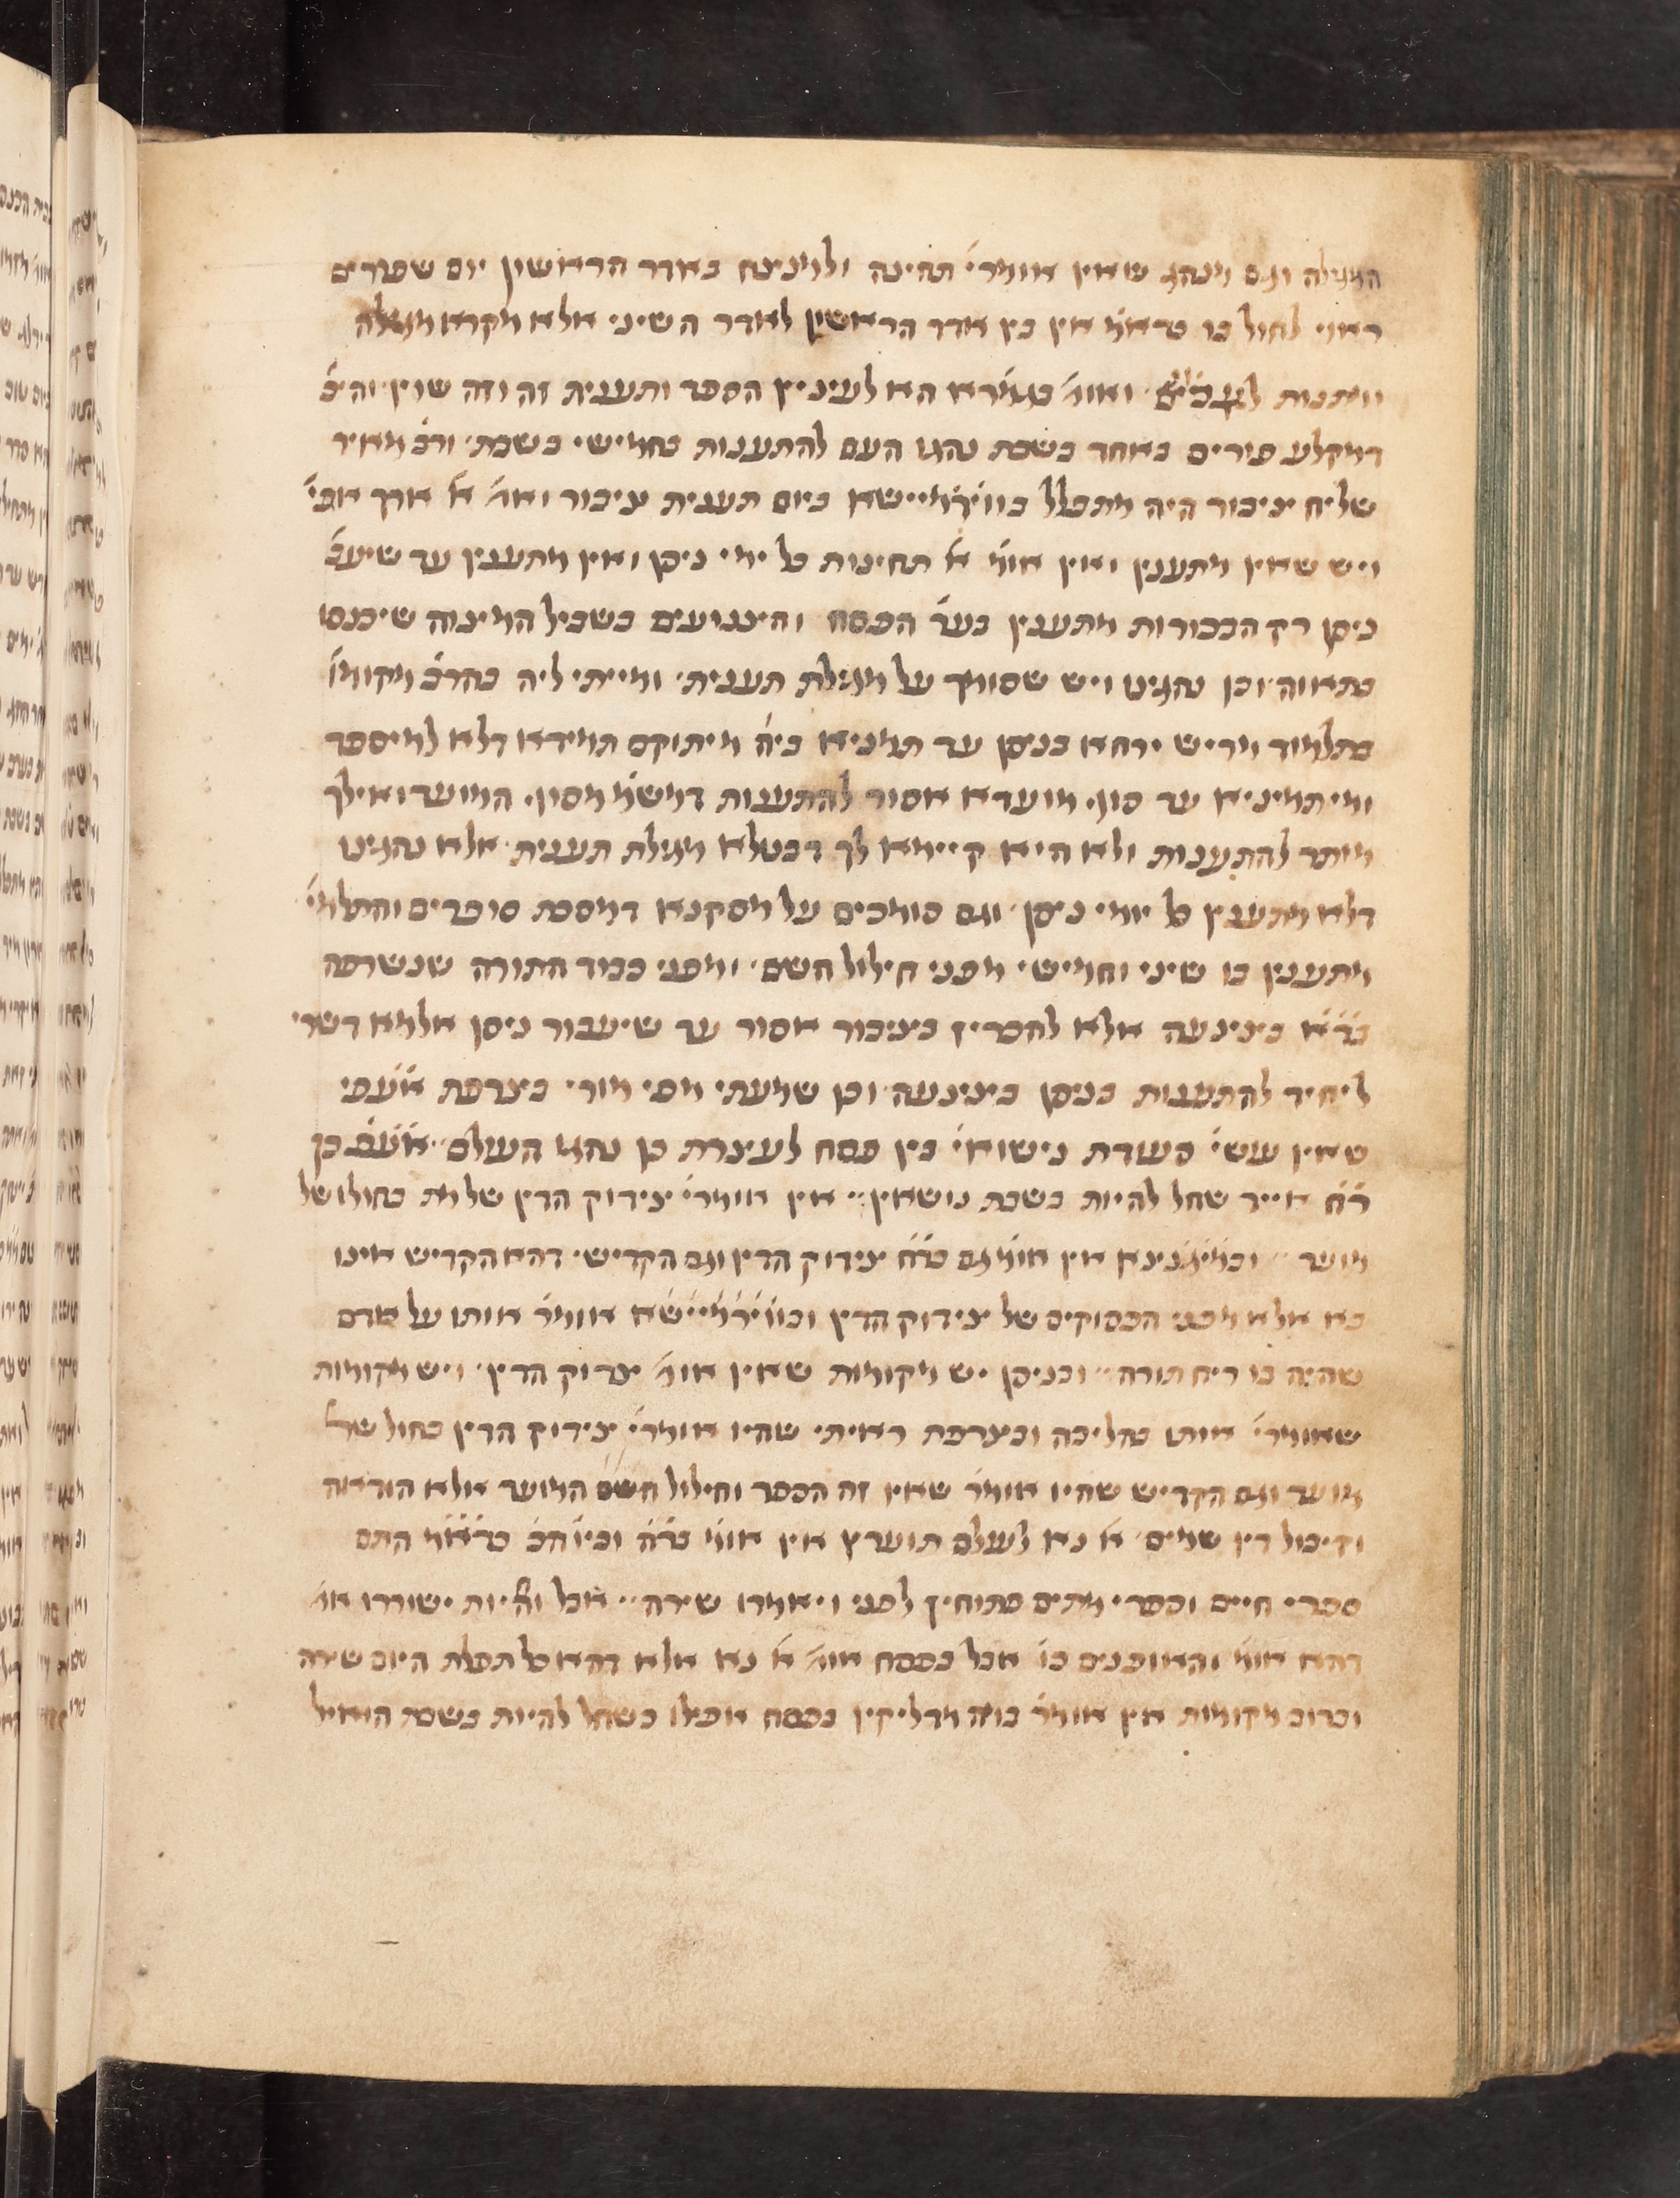 המגילה וגם מנהג שאין אומרי׳ תחינה ולמנצח באדר הראשון יום שפורים
ראוי לחול בו שאין בין אדר הראשון לאדר השיני אלא מקרא מגילה
ומתנות ואו׳ בגמרא הא לעיניין הספר ותענית זה וזה שוין והיכ׳
דמקלע פורים באחד בשבת נהגו העם להתענות בחמישי בשבת ורב׳ מאיר
שליח ציבור היה מתפלל בווירמיישא ביום תענית ציבור ואו׳ א׳ ארך אפי׳
ויש שאין מתענין ואין אומ׳ א׳ תחינות כל ימי ניסן ואין מתענין עד שיעב׳
ניסן רק הבכורות מתענין בער׳ הפסח והצנועים בשביל המצה שיכנסו
בתאוה וכן נהגינו ויש שסומך על מגילת תענית ומייתי ליה בהרב׳ מקומו׳
בתלמוד מריש ירחא בניסן עד תמניא ביה׳ מיתוקם תמידא דלא למיספד
ומי תמיניא עד סוף מועדא אסור להתענות דמשמ׳ מסוף המועד ואילך
מותר להתענות ולא היא קיימא לך דבטלא מגילת תענית אלא נהגינו
דלא מתענין כל יומי ניסן וגם סומכים על מסקנא דמסכת סופרים והתלמי׳
מתענין בו שיני וחמישי מפני חילול השם ומפני כבוד התורה שנשרפה
כד׳א׳ בצינעה אלא להכריז בציבור אסור עד שיעבור ניסן אלמא דשרי
ליחיד להתענות בניסן בצינעה וכן שמעתי מפי מורי בצרפת אעפי
שאין עושי׳ סעודת נישואי׳ בין פסח לעצרת כן נהגו העולם אעפ׳ כן
ר׳ח׳ אייר שחל להיות בשבת נושאין אין אומרי׳ צידוק הדין של מת בחולו של
מועד ובמיגנצא אין אומ׳ גם בר׳ח׳ צידוק הדין וגם הקדיש דהא הקדיש אינו
בא אלא מפני הפסוקים של צידוק הדין ובווירמיישא אומר׳ אותו על אדם
שהיה בו ריח תורה ובניסן יש מקומות שאין או׳ צדוק הדין ויש מקומות
שאומרי׳ אותו בהליכה ובצרפת ראיתי שהיו אומרי׳ צידוק הדין בחול של
מועד וגם הקדיש שהיו אומר׳ שאין זה הספד וחילול המועד אלא הודאה
וקיבול דין שמים א׳ נא לעולם תוערץ אין אומ׳ בר׳ה׳ וביו׳הכ׳ התם
ספרי חיים וספרי מתים פתוחין לפני ויאמרו שירה אבל והחיות ישוררו או׳
דהא אומ׳ והאופנים כו׳ אבל בפסח או׳ א׳ נא אלא דהא כל תפלת היום שירה
וברוב מקומות אין אומר׳ במה מדליקין בפסח אפילו כשחל להיות בשבת הואיל